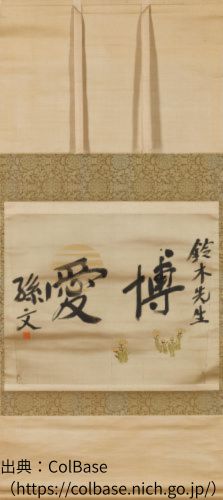 鈴木先生
博愛
孫文
出典：ColBase
（https://colbase.nich.go.jp/）